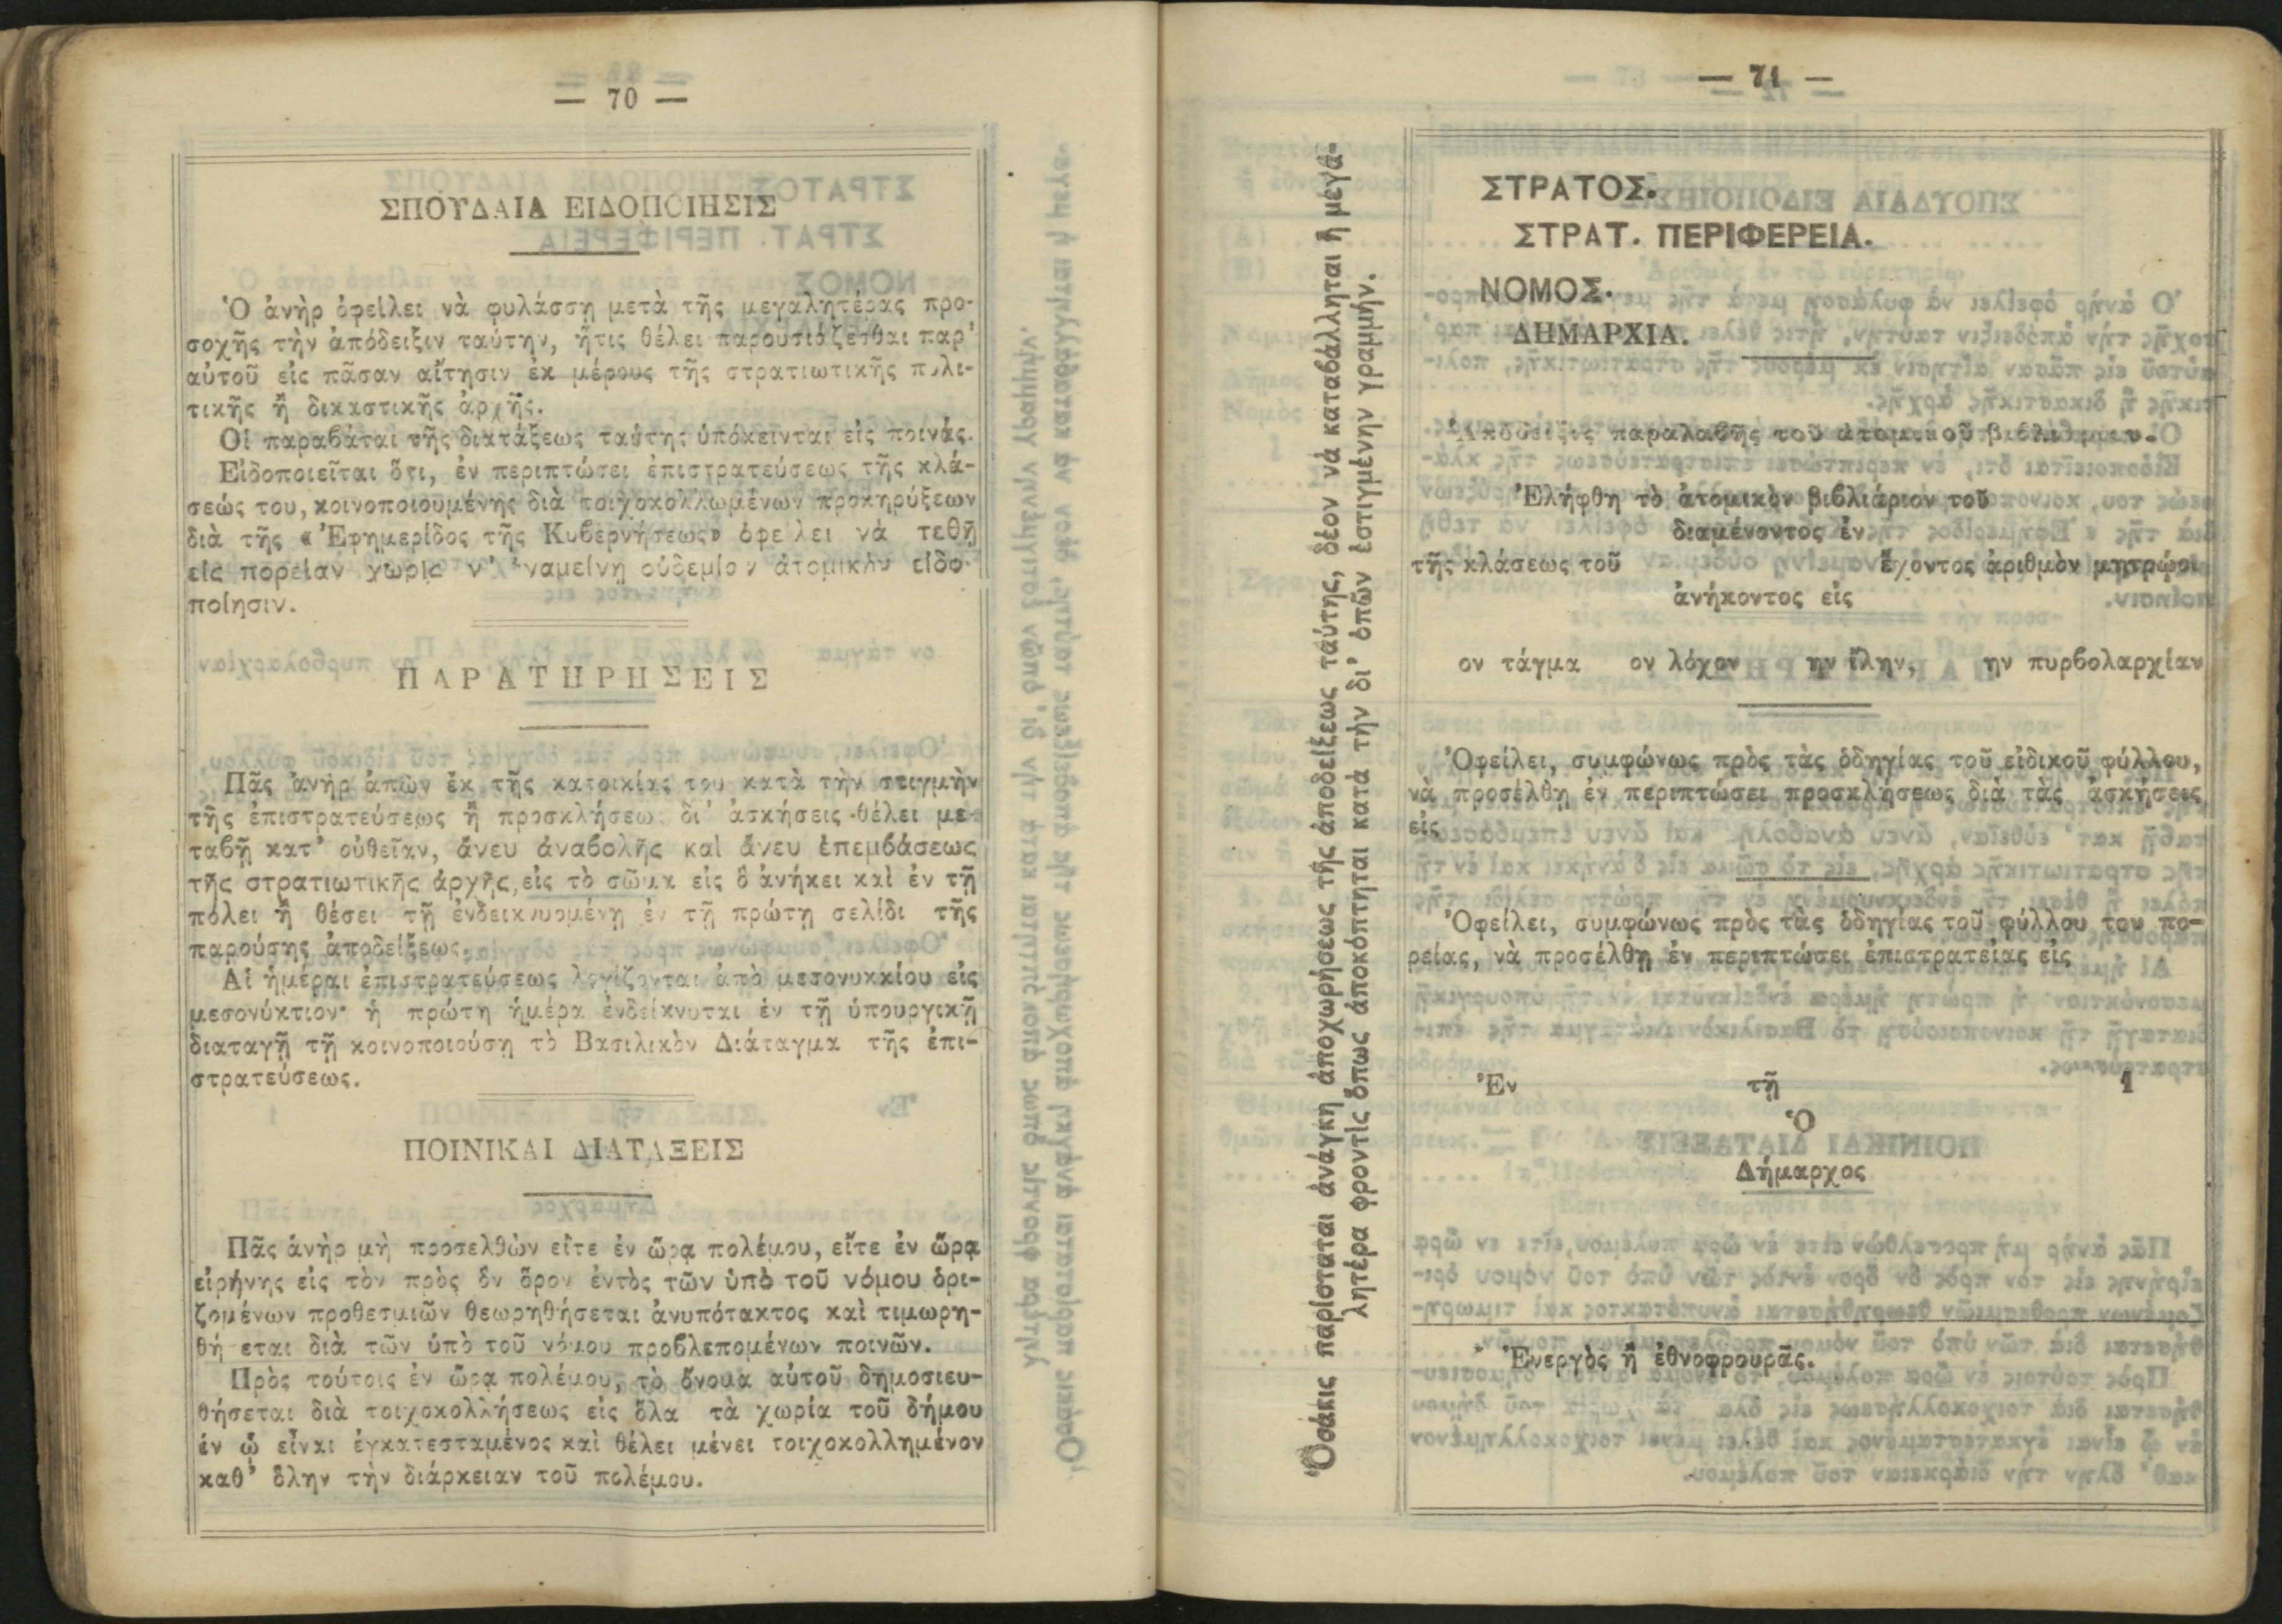 — 70 —
ΣΠΟΥΔΑΙΑ ΕΙΔΟΠΟΙΗΣΙΣ
Ὁ ἀνὴρ ὀφείλει νὰ φυλάσσῃ μετὰ τῆς μεγαλητέρας προ-
σοχῆς τὴν ἀπόδειξιν ταύτην, ἥτις θέλει παρουσιάζεσθαι παρ’
αὐτοῦ εἰς πᾶσαν αἴτησιν ἐκ μέρους τῆς στρατιωτικῆς πολι-
τικῆς ἢ δικαστικῆς ἀρχῆς.
Οἱ παραβάται τῆς διατάξεως ταύτης ὑπόκεινται εἰς ποινάς.
Εἰδοποιεῖται ὅτι, ἐν περιπτώσει ἐπιστρατεύσεως τῆς κλά-
σεώς του, κοινοποιουμένης διὰ τοιχοκολλωμένων προκηρύξεων
διὰ τῆς «Ἐφημερίδος τῆς Κυβερνήσεως» ὀφείλει νὰ τεθῇ
εἰς πορείαν χωρὶς ν’ ἀναμείνῃ οὐδεμίαν ἀτομικὴν εἰδο-
ποίησιν.
ΠΑΡΑΤΗΡΗΣΕΙΣ
Πᾶς ἀνὴρ ἀπὼν ἐκ τῆς κατοικίας του κατὰ τὴν στιγμὴν
τῆς ἐπιστρατεύσεως ἢ προσκλήσεως δι’ ἀσκήσεις θέλει με-
ταβῇ κατ’ οὐθεῖαν, ἄνευ ἀναβολῆς καὶ ἄνευ ἐπεμβάσεως
τῆς στρατιωτικῆς ἀρχῆς, εἰς τὸ σῶμα εἰς ὃ ἀνήκει καὶ ἐν τῇ
πόλει ἢ θέσει τῇ ἐνδεικνυομένῃ ἐν τῇ πρώτῃ σελίδι τῆς
παρούσης ἀποδείξεως.
Αἱ ἡμέραι ἐπιστρατεύσεως λογίζονται ἀπὸ μεσονυκκίου εἰς
μεσονύκτιον· ἡ πρώτη ἡμέρα ἐνδείκνυται ἐν τῇ ὑπουργικῇ
διαταγῇ τῇ κοινοποιούσῃ τὸ Βασιλικὸν Διάταγμα τῆς ἐπι-
στρατεύσεως.
ΠΟΙΝΙΚΑΙ ΔΙΑΤΑΞΕΙΣ
Πᾶς ἀνὴρ μὴ προσελθὼν εἴτε ἐν ὥρᾳ πολέμου, εἴτε ἐν ὥρᾳ
εἰρήνης εἰς τὸν πρὸς ὃν ὅρον ἐντὸς τῶν ὑπὸ τοῦ νόμου ὁρι-
ζομένων προθεσμιῶν θεωρηθήσεται ἀνυπότακτος καὶ τιμωρη-
θήσεται διὰ τῶν ὑπὸ τοῦ νόμου προβλεπομένων ποινῶν.
Πρὸς τούτοις ἐν ὥρᾳ πολέμου, τὸ ὄνομα αὐτοῦ δημοσιευ-
θήσεται διὰ τοιχοκολλήσεως εἰς ὅλα τὰ χωρία τοῦ δήμου
ἐν ᾧ εἶναι ἐγκατεσταμένος καὶ θέλει μένει τοιχοκολλημένον
καθ’ ὅλην τὴν διάρκειαν τοῦ πολέμου.
— 71 —
Ὁσάκις παρίσταται ἀνάγκη ἀποχωρήσεως τῆς ἀποδείξεως ταύτης, δέον νὰ καταβάλληται ἡ μεγα-
λητέρα φροντὶς ὅπως ἀποκόπτηται κατὰ τὴν δι’ ὀπῶν ἐστιγμένην γραμμήν.
ΣΤΡΑΤΟΣ.
ΣΤΡΑΤ. ΠΕΡΙΦΕΡΕΙΑ.
ΝΟΜΟΣ.
ΔΗΜΑΡΧΙΑ.
Ἀπόδειξις παραλαβῆς τοῦ ἀτομικοῦ βιβλιαρίου.
Ἐλήφθη τὸ ἀτομικὸν βιβλιάριον τοῦ
διαμένοντος ἐν
τῆς κλάσεως τοῦ ἔχοντος ἀριθμὸν μητρώου
ἀνήκοντος εἰς
ον τάγμα ον λόχον ην ἴλην, ην πυρβολαρχίαν
Ὀφείλει, συμφώνως πρὸς τὰς ὁδηγίας τοῦ εἰδικοῦ φύλλου,
νὰ προσέλθῃ ἐν περιπτώσει προσκλήσεως διὰ τὰς ἀσκήσεις
εἰς
Ὀφείλει, συμφώνως πρὸς τὰς ὁδηγίας τοῦ φύλλου του πο-
ρείας, νὰ προσέλθῃ ἐν περιπτώσει ἐπιστρατείας εἰς
Ἐν τῇ 1
Ὁ
Δήμαρχος
Ἐνεργὸς ἢ ἐθνοφρουρᾶς.